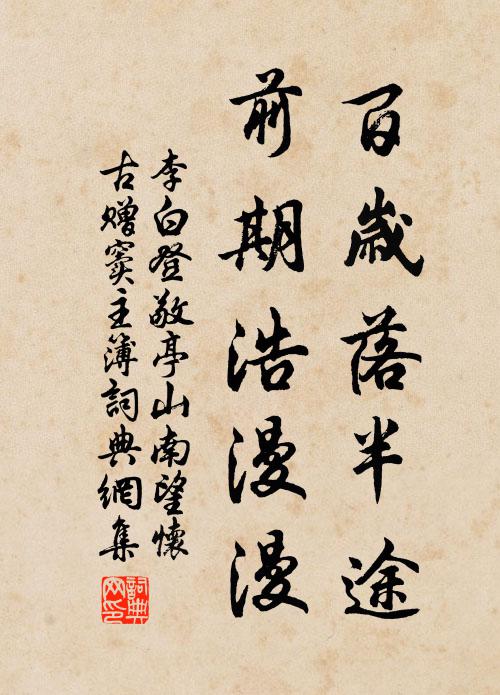 百歲落半途
前期浩漫漫
李白登敬亭山南望懷
古贈竇主簿詞典網集
詞典
网印